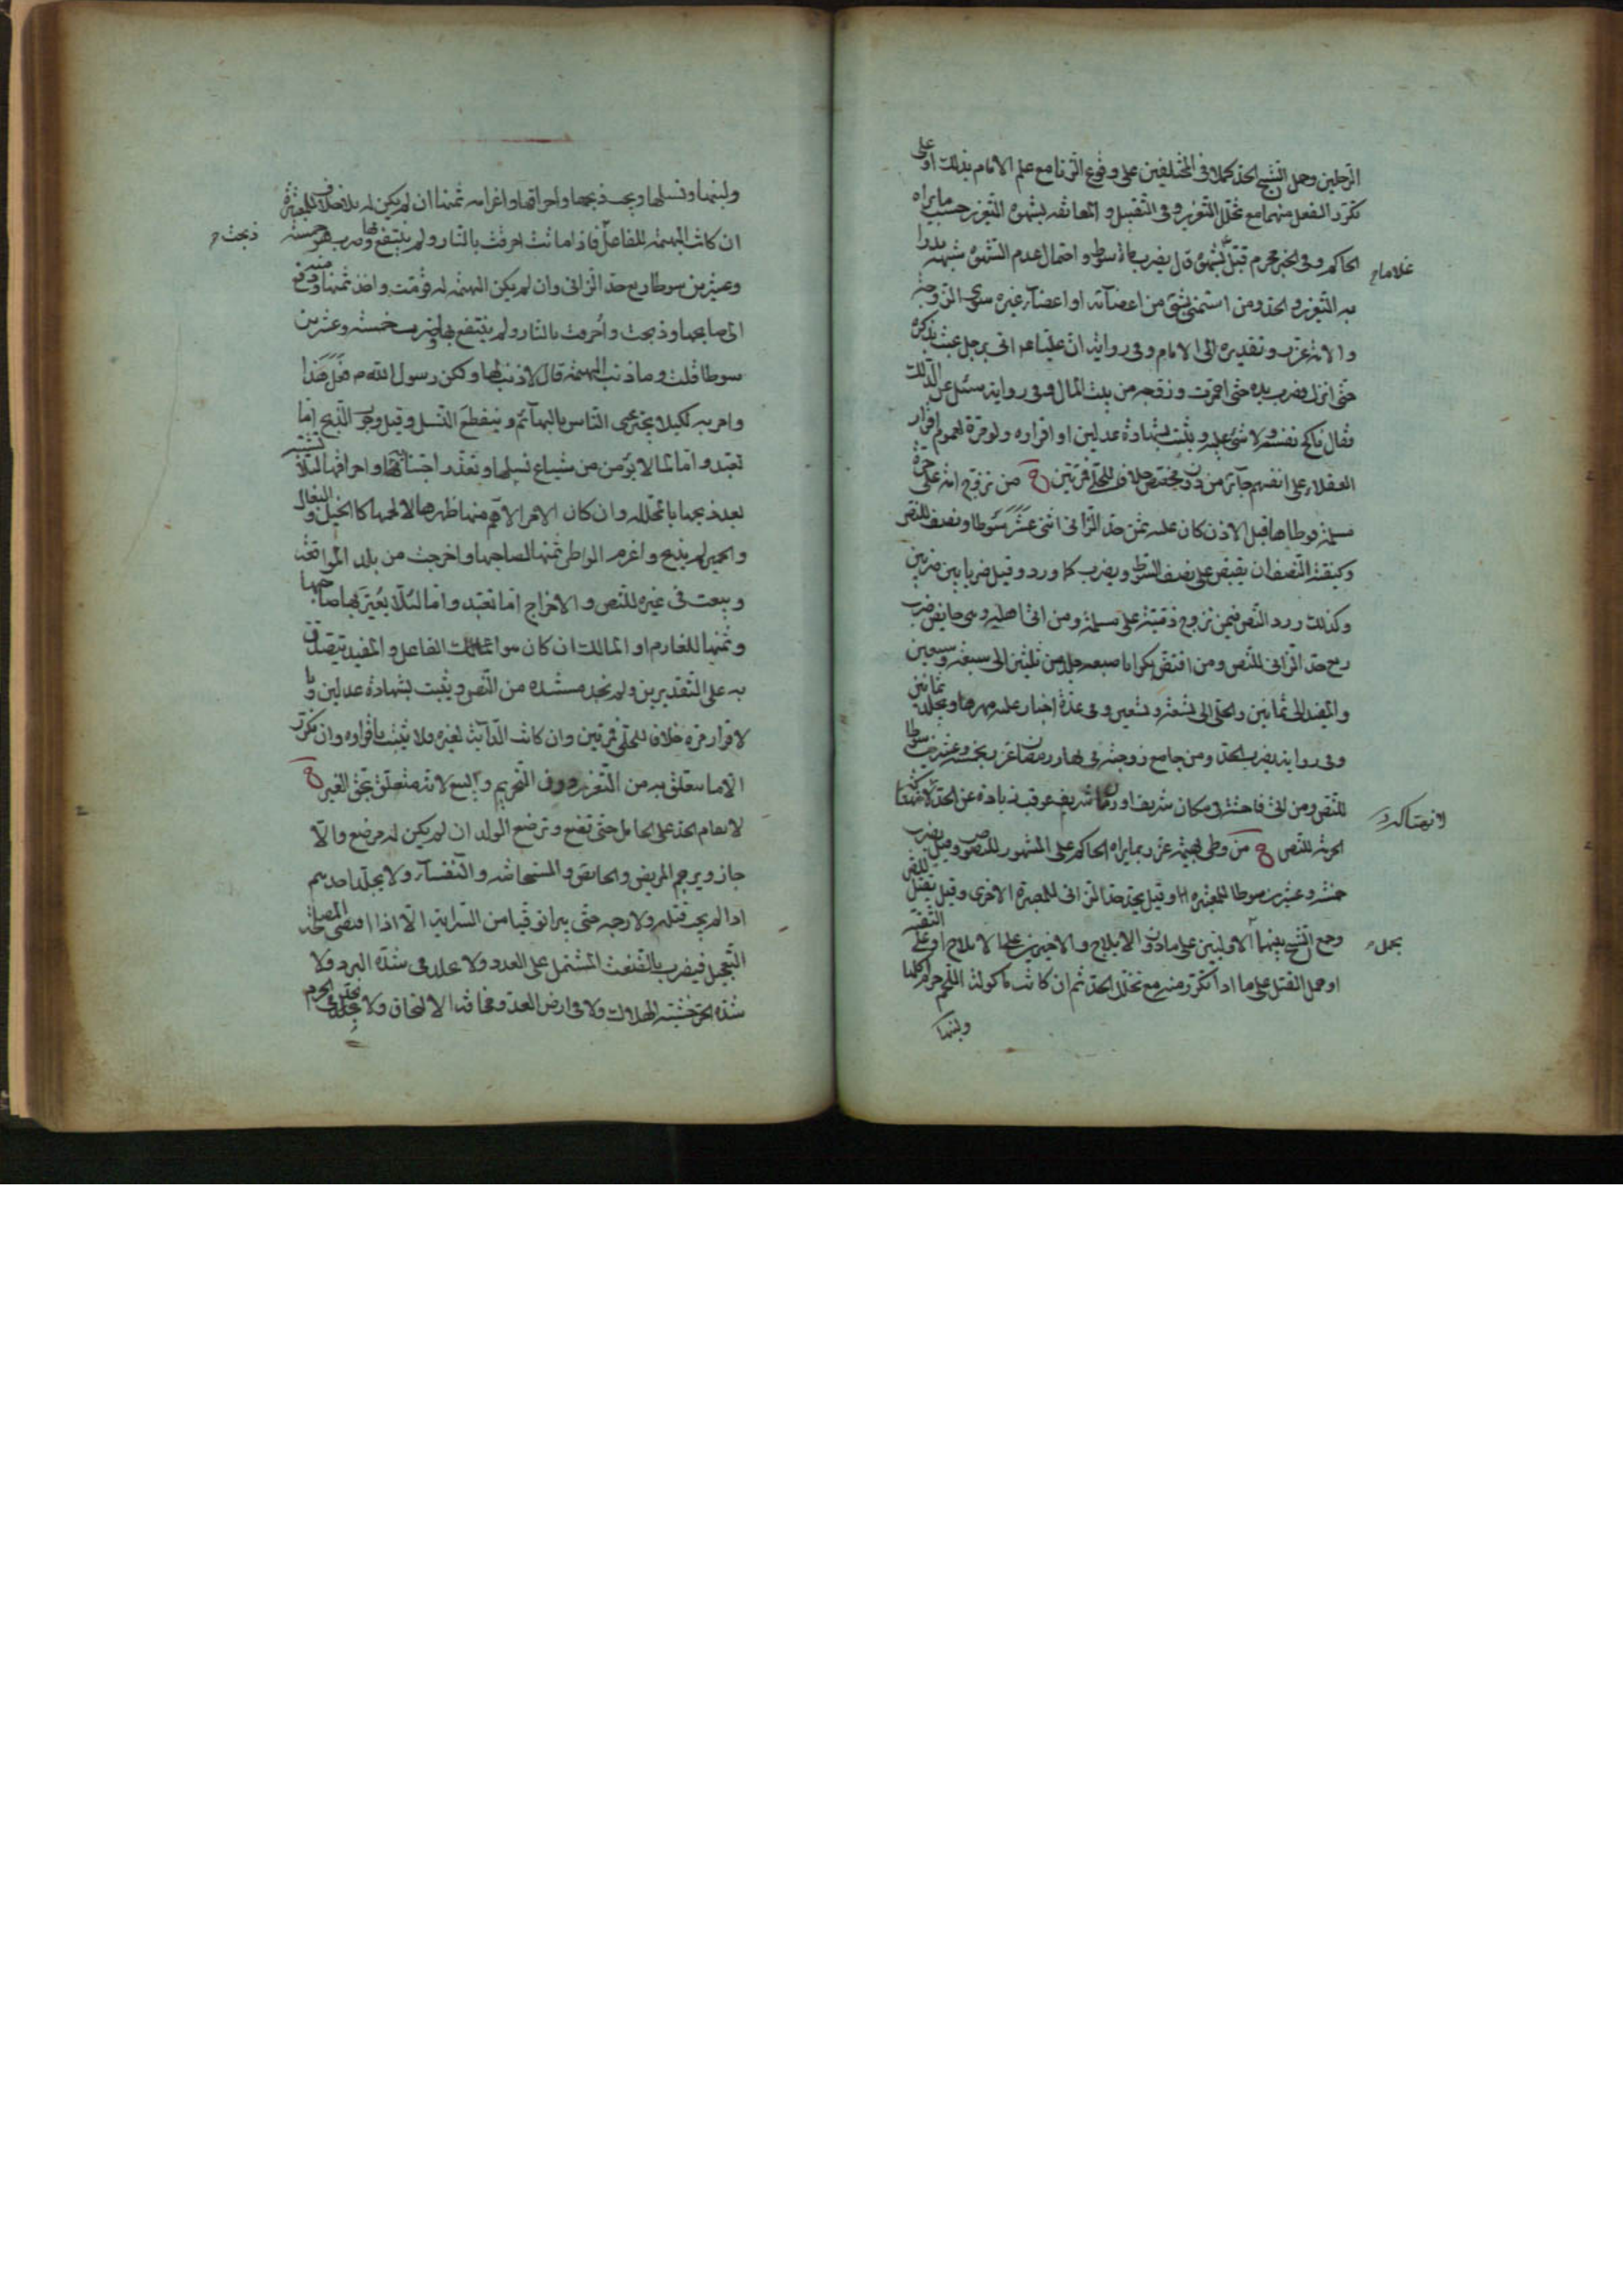 الرجلين وحمل الشيخ الحد كملا في المختلفين على وقوع الزنا مع علم الامام بذلك او على
تكرر الفعل منهما مع تخلل التعزير وفي التقبيل والمعانقه بشهوة التعزير حسب ما يراه
الحاكم وفي الخبر محرم قبل غلاما بشهوة قال يضرب مائة سوط واحتمال عدم الشهوة شبهه يدرأ
به التعزير والحد ومن استمنى بشئ من اعضائه او اعضاء غيره سوى الزوجة
والامة عزر وتقديره الى الامام وفي رواية ان عليا ع اتي برجل عبث بذكره
حتى انزل فضرب يده حتى احمرت وزوجه من بيت المال وفي رواية سئل عن الدلك
فقال ناكح نفسه ولا شئ عليه ويثبت بشهادة عدلين او اقراره ولو مرة لعموم اقرار
العقلاء على انفسهم جائز من دون مخصص خلافا للحلي فمرتين من تزوج امة على حرة
مسلمة فوطأها قبل الاذن كان عليه ثمن حد الزاني اثنى عشر سوطا ونصف للنص
وكيفية النصف ان يقبض على نصف السوط ويضرب كما ورد وقيل ضربا بين ضربين
وكذلك ورد النص فيمن تزوج ذمية على مسلمة ومن اتى اهله وهي حايض ضرب
ربع حد الزاني للنص ومن افتض بكرا باصبعه جلد من ثلثين الى سبعة وسبعين
والمفيد الى ثمانين والحلي الى تسعة وتسعين وفي عدة اخبار عليه مهرها ويجلد ثمانين
وفي رواية يضرب الحد ومن جامع زوجته في نهار رمضان عزر بخمسة وعشرين سوطا
للنص ومن اتى فاحشة في مكان شريف او زمان شريف عوقب زيادة عن الحد لانتهاكه
الحرمة للنص من وطى بهيمة عزر بما يراه الحاكم على المشهور للنصوص وقيل يضرب
خمسة وعشرين سوطا للمعتبرة وقيل يحد حد الزاني للمعتبرة الاخرى وقيل يقتل للنص
وجمع الشيخ بينهما بحمل الاولين على ما دون الايلاج والاخيرين على الايلاج او على التقية
او حمل القتل على ما اذا تكرر منه مع تخلل الحد ثم ان كانت مأكولة اللحم حرم اكلها
ولبنها
غلاما
لانتهاكه
بحمل
ولبنها ونسلها ويجب ذبحها واحراقها واغرامه ثمنها ان لم يكن له بلا خلاف للمعتبرة
ان كانت البهيمة للفاعل ذبحت فاذا ماتت احرقت بالنار ولم ينتفع بها وضرب هو خمسة
وعشرين سوطا ربع حد الزاني وان لم يكن البهيمة له قومت واخذ ثمنها منه ودفع
الى صاحبها وذبحت واحرقت بالنار ولم ينتفع بها وضرب خمسة وعشرين
سوطا قلت وما ذنب البهيمة قال لا ذنب لها ولكن رسول الله ص فعل هذا
وامر به لكيلا يجترى الناس بالبهائم وينقطع النسل وقيل وجوب الذبح اما
تعبد واما لما لا يؤمن من شياع نسلها وتعذر اجتنابها واحراقها لئلا تشتبه
بعد ذبحها بالمحلله وان كان الامر الاهم منها ظهرها لا لحمها كالخيل والبغال
والحمير لم يذبح واغرم الواطى ثمنها لصاحبها واخرجت من بلد المواقعة
وبيعت في غيره للنص والاخراج اما تعبد واما لئلا يعير بها صاحبها
وثمنها للغارم او المالك ان كان سوا المالك الفاعل والمفيد يتصدق
به على التقديرين ولم نجد مستنده من النص ويثبت بشهادة عدلين وبا
لاقرار مرة خلافا للحلي فمرتين وان كانت الدابة لغيره فلا يثبت باقراره وان تكرر
الا ما يتعلق به من التعزير دون التحريم والبيع لانه متعلق بحق الغير
لا يقام الحد على الحامل حتى تضع وترضع الولد ان لم يكن له مرضع والا
جاز ويرجم المريض والحائض والمستحاضه والنفساء ولا يجلد احدهم
اذا لم يجب قتله ولا رجمه حتى يبرأ توقيا من السراية الا اذا اقتضى المصلحة
التعجيل فيضرب بالضغث المشتمل على العدد ولا يجلد في شدة البرد ولا
شدة الحر خشية الهلاك ولا في ارض العدو مخافة الالتحاق ولا في الحرم
ذبحت